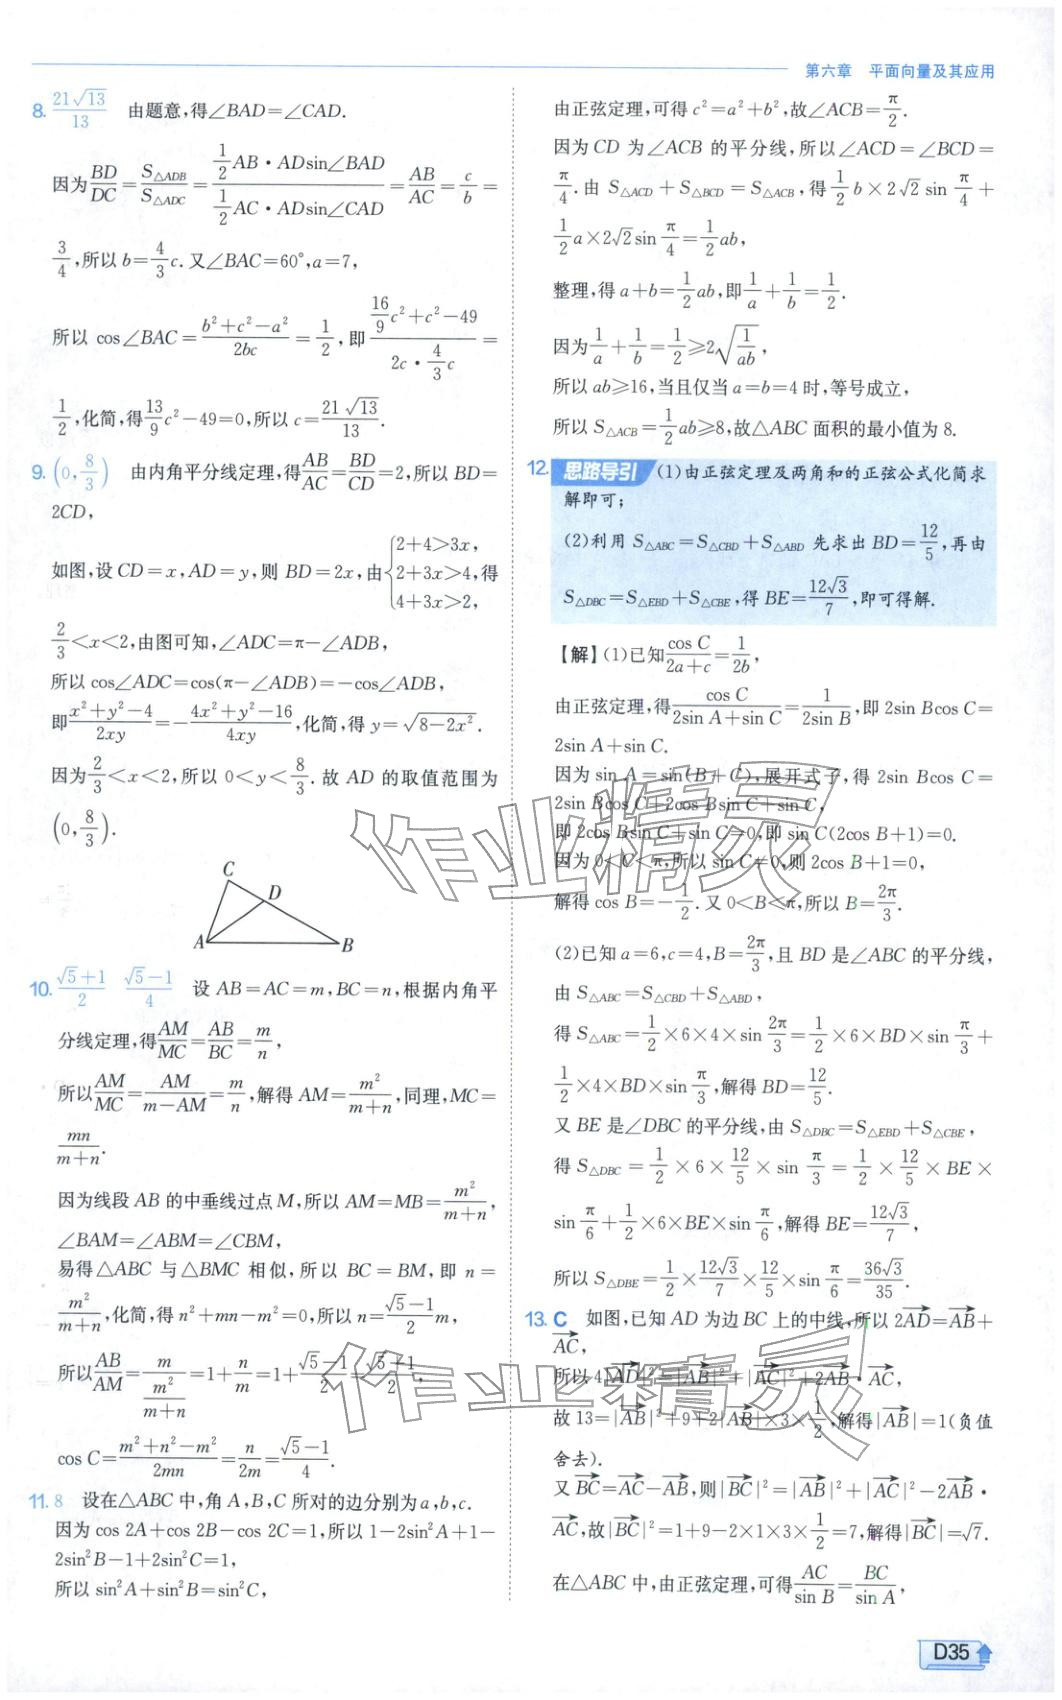 第六章　平面向量及其应用
8. 21√13/13　由题意,得∠BAD=∠CAD.
因为BD/DC=S△ADB/S△ADC=(1/2 AB·ADsin∠BAD)/(1/2 AC·ADsin∠CAD)=AB/AC=c/b=
3/4,所以b=4/3 c.又∠BAC=60°,a=7,
所以 cos∠BAC=(b²+c²−a²)/2bc=1/2,即(16/9 c²+c²−49)/(2c·4/3 c)=
1/2,化简,得13/9 c²−49=0,所以c=21√13/13.
9. (0,8/3)　由内角平分线定理,得AB/AC=BD/CD=2,所以BD=
2CD,
如图,设CD=x,AD=y,则BD=2x,由{2+4>3x, 2+3x>4, 4+3x>2,得
2/3<x<2,由图可知,∠ADC=π−∠ADB,
所以cos∠ADC=cos(π−∠ADB)=−cos∠ADB,
即(x²+y²−4)/2xy=−(4x²+y²−16)/4xy,化简,得y=√(8−2x²).
因为2/3<x<2,所以0<y<8/3.故AD的取值范围为
(0,8/3).
C
D
A
B
10. (√5+1)/2　(√5−1)/4　设AB=AC=m,BC=n,根据内角平
分线定理,得AM/MC=AB/BC=m/n,
所以AM/MC=AM/(m−AM)=m/n,解得AM=m²/(m+n),同理,MC=
mn/(m+n).
因为线段AB的中垂线过点M,所以AM=MB=m²/(m+n),
∠BAM=∠ABM=∠CBM,
易得△ABC与△BMC相似,所以BC=BM,即n=
m²/(m+n),化简,得n²+mn−m²=0,所以n=(√5−1)/2 m,
所以AB/AM=m/(m²/(m+n))=1+n/m=1+(√5−1)/2=(√5+1)/2,
cos C=(m²+n²−m²)/2mn=n/2m=(√5−1)/4.
11. 8　设在△ABC中,角A,B,C所对的边分别为a,b,c.
因为cos 2A+cos 2B−cos 2C=1,所以1−2sin²A+1−
2sin²B−1+2sin²C=1,
所以sin²A+sin²B=sin²C,
由正弦定理,可得c²=a²+b²,故∠ACB=π/2.
因为CD为∠ACB的平分线,所以∠ACD=∠BCD=
π/4.由S△ACD+S△BCD=S△ACB,得1/2 b×2√2 sin π/4+
1/2 a×2√2 sin π/4=1/2 ab,
整理,得a+b=1/2 ab,即1/a+1/b=1/2.
因为1/a+1/b=1/2≥2√(1/ab),
所以ab≥16,当且仅当a=b=4时,等号成立,
所以S△ACB=1/2 ab≥8,故△ABC面积的最小值为8.
12. 思路导引 (1)由正弦定理及两角和的正弦公式化简求
解即可;
(2)利用S△ABC=S△CBD+S△ABD先求出BD=12/5,再由
S△DBC=S△EBD+S△CBE,得BE=12√3/7,即可得解.
【解】(1)已知cos C/(2a+c)=1/2b,
由正弦定理,得cos C/(2sin A+sin C)=1/(2sin B),即2sin Bcos C=
2sin A+sin C.
因为sin A=sin(B+C),展开式子,得2sin Bcos C=
2sin Bcos C+2cos Bsin C+sin C,
即2cos Bsin C+sin C=0,即sin C(2cos B+1)=0.
因为0<C<π,所以sin C≠0,则2cos B+1=0,
解得cos B=−1/2.又0<B<π,所以B=2π/3.
(2)已知a=6,c=4,B=2π/3,且BD是∠ABC的平分线,
由S△ABC=S△CBD+S△ABD,
得S△ABC=1/2×6×4×sin 2π/3=1/2×6×BD×sin π/3+
1/2×4×BD×sin π/3,解得BD=12/5.
又BE是∠DBC的平分线,由S△DBC=S△EBD+S△CBE,
得S△DBC=1/2×6×12/5×sin π/3=1/2×12/5×BE×
sin π/6+1/2×6×BE×sin π/6,解得BE=12√3/7,
所以S△DBE=1/2×12√3/7×12/5×sin π/6=36√3/35.
13. C　如图,已知AD为边BC上的中线,所以2AD→=AB→+
AC→,
所以4|AD→|²=|AB→|²+|AC→|²+2AB→·AC→,
故13=|AB→|²+9+2|AB→|×3×1/2,解得|AB→|=1(负值
舍去).
又BC→=AC→−AB→,则|BC→|²=|AB→|²+|AC→|²−2AB→·
AC→,故|BC→|²=1+9−2×1×3×1/2=7,解得|BC→|=√7.
在△ABC中,由正弦定理,可得AC/sin B=BC/sin A,
作业精灵
作业精灵
D35